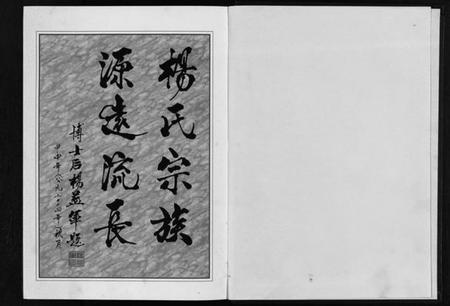 楊氏宗族
源遠流長
博士后楊益軍題
甲申年公元二〇〇四年秋月